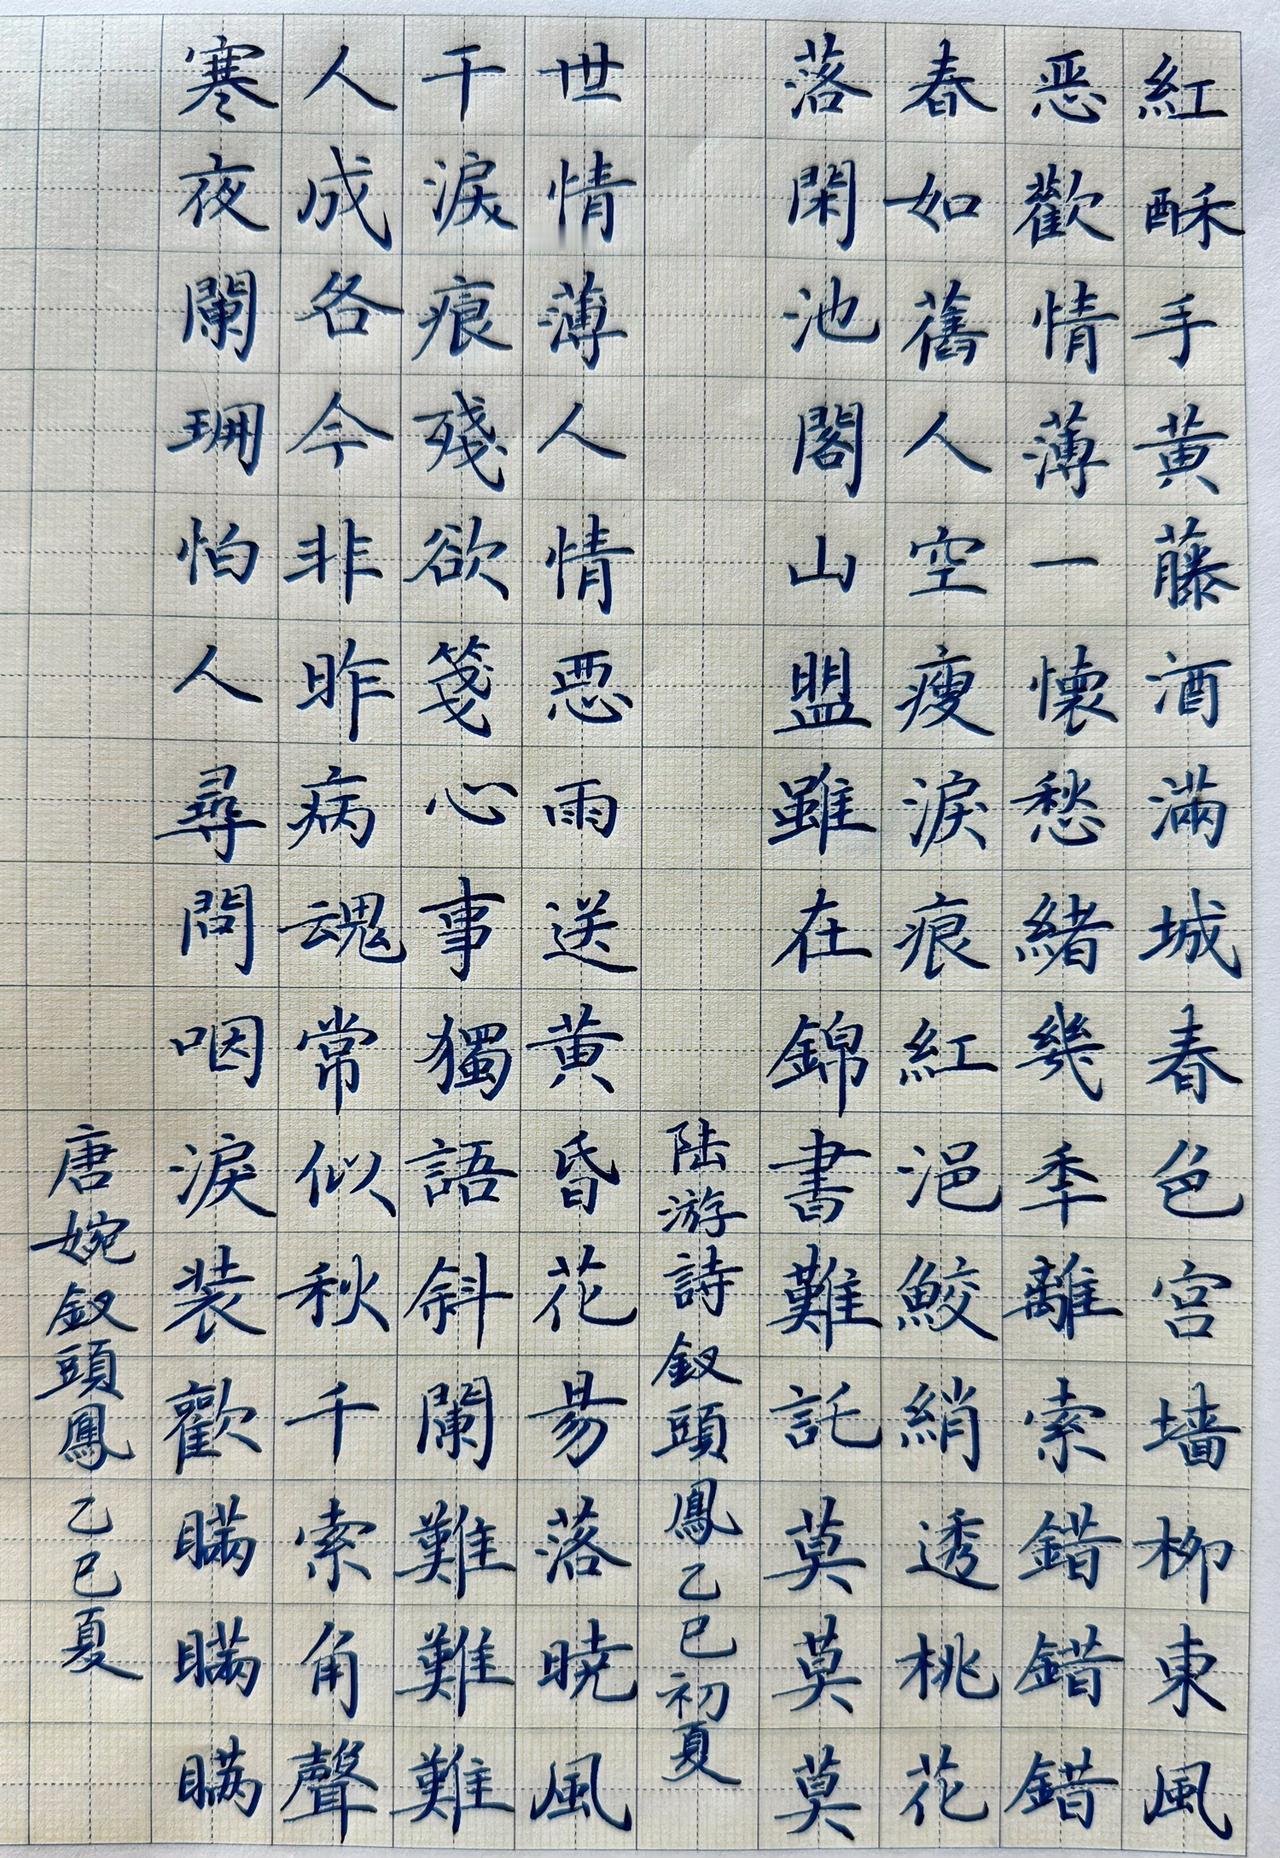 紅酥手黃藤酒滿城春色宮墻柳東風
恶歡情薄一懷愁緒幾秊離索錯錯錯
春如舊人空瘦淚痕紅浥鮫綃透桃花
落閑池閣山盟雖在錦書難託莫莫莫
陆游詩釵頭鳳乙巳初夏
世情薄人情惡雨送黄昏花易落曉風
干淚痕殘欲箋心事獨語斜闌難難難
人成各今非昨病魂常似秋千索角聲
寒夜闌珊怕人尋問咽淚装歡瞞瞞瞞
唐婉釵頭鳳乙巳夏